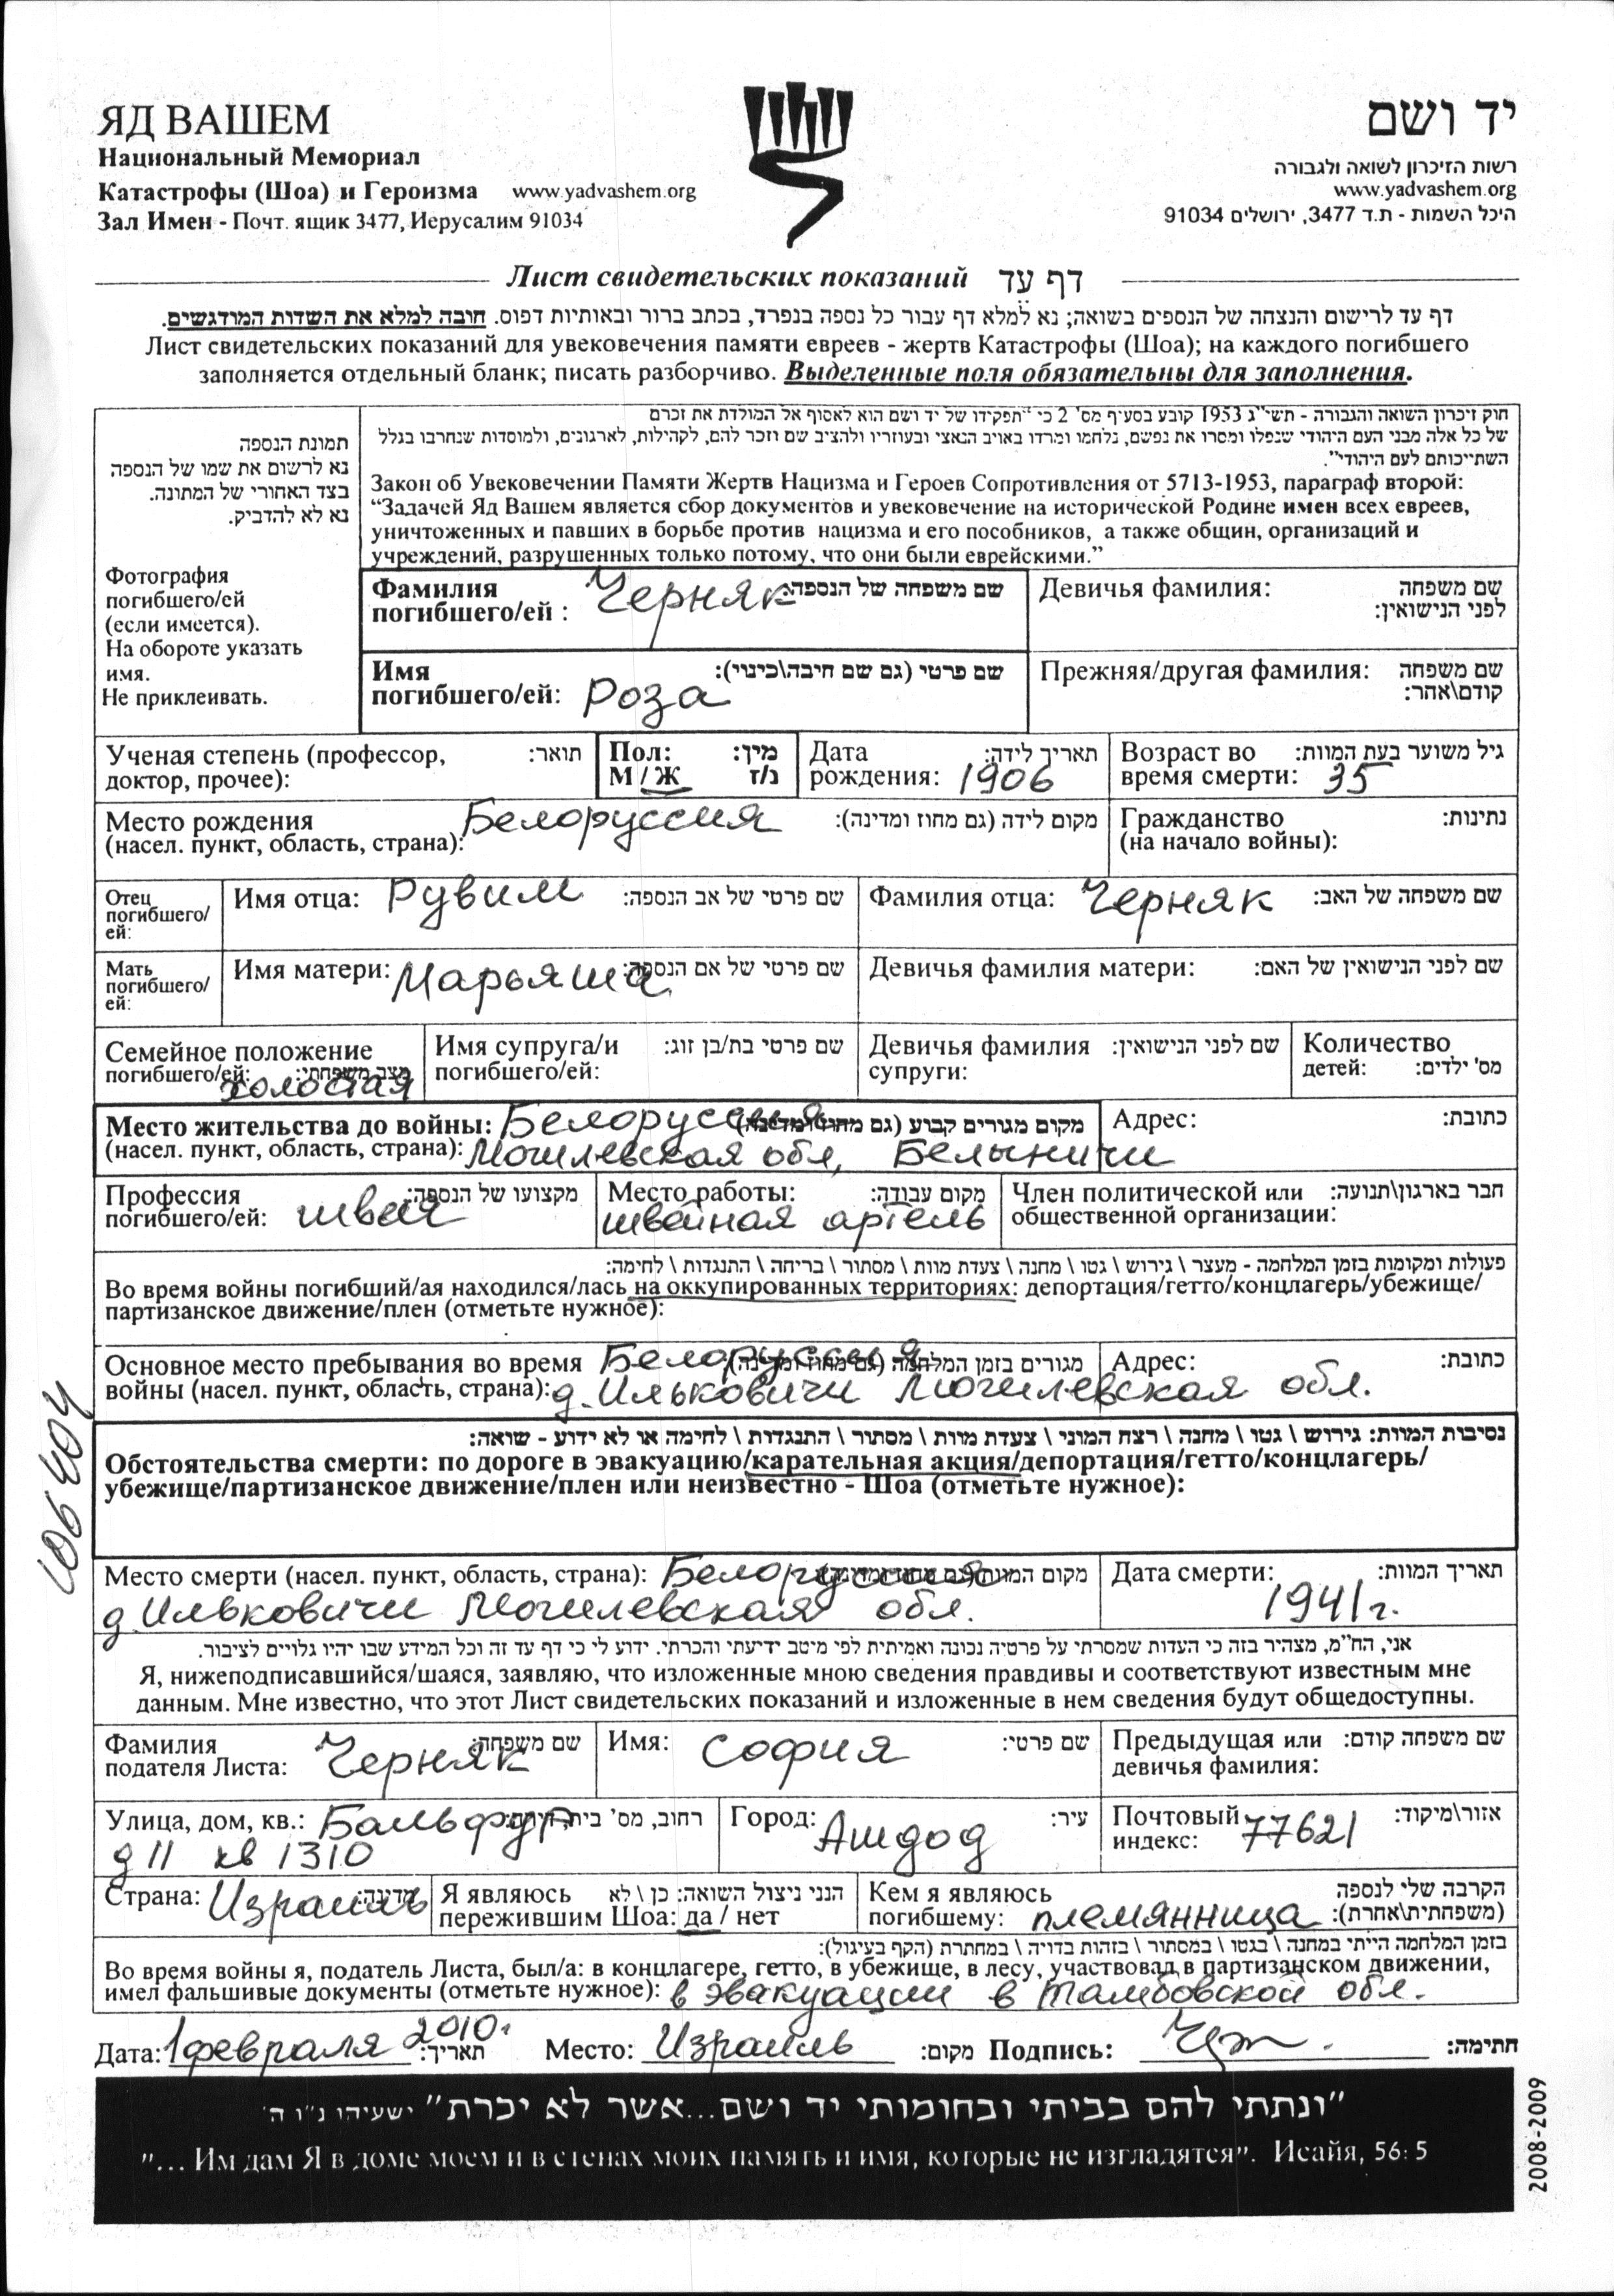 ЯД ВАШЕМ
Национальный Мемориал
Катастрофы (Шоа) и Героизма www.yadvashem.org
Зал Имен - Почт. ящик 3477, Иерусалим 91034
יד ושם
רשות הזיכרון לשואה ולגבורה
www.yadvashem.org
היכל השמות - ת.ד 3477, ירושלים 91034
Лист свидетельских показаний דף עד
דף עד לרישום והנצחה של הנספים בשואה; נא למלא דף עבור כל נספה בנפרד, בכתב ברור ובאותיות דפוס. חובה למלא את השדות המודגשים.
Лист свидетельских показаний для увековечения памяти евреев - жертв Катастрофы (Шоа); на каждого погибшего
заполняется отдельный бланк; писать разборчиво. Выделенные поля обязательны для заполнения.
תמונת הנספה
נא לרשום את שמו של הנספה
בצד האחורי של המתונה.
נא לא להדביק.
Фотография
погибшего/ей
(если имеется).
На обороте указать
имя.
Не приклеивать.
חוק זיכרון השואה והגבורה - תשי"ג 1953 קובע בסעיף מס' 2 כי "תפקידו של יד ושם הוא לאסוף אל המולדת את זכרם
של כל אלה מבני העם היהודי שנפלו ומסרו את נפשם, נלחמו ומרדו באויב הנאצי ובעוזריו ולהציב שם וזכר להם, לקהילות, לארגונים, ולמוסדות שנחרבו בגלל
השתייכותם לעם היהודי".
Закон об Увековечении Памяти Жертв Нацизма и Героев Сопротивления от 5713-1953, параграф второй:
“Задачей Яд Вашем является сбор документов и увековечение на исторической Родине имен всех евреев,
уничтоженных и павших в борьбе против нацизма и его пособников, а также общин, организаций и
учреждений, разрушенных только потому, что они были еврейскими.”
Фамилия погибшего/ей : Черняк שם משפחה של הנספה:
Девичья фамилия: שם משפחה לפני הנישואין:
Имя погибшего/ей: Роза שם פרטי (גם שם חיבה\כינוי):
Прежняя/другая фамилия: שם משפחה קודם\אחר:
Ученая степень (профессор, доктор, прочее): תואר:
Пол: М / Ж מין: ז/נ
Дата рождения: 1906 תאריך לידה:
Возраст во время смерти: 35 גיל משוער בעת המוות:
Место рождения (насел. пункт, область, страна): Белоруссия מקום לידה (גם מחוז ומדינה):
Гражданство (на начало войны): נתינות:
Отец погибшего/ей:
Имя отца: Рувим שם פרטי של אב הנספה:
Фамилия отца: Черняк שם משפחה של האב:
Мать погибшего/ей:
Имя матери: Марьяша שם פרטי של אם הנספה:
Девичья фамилия матери: שם לפני הנישואין של האם:
Семейное положение погибшего/ей: холостая מצב משפחתי:
Имя супруга/и погибшего/ей: שם פרטי בת/בן זוג:
Девичья фамилия супруги: שם לפני הנישואין:
Количество детей: מס' ילדים:
Место жительства до войны: Белоруссия מקום מגורים קבוע (גם מחוז ומדינה)
(насел. пункт, область, страна): Могилевская обл, Белыничи
Адрес: כתובת:
Профессия погибшего/ей: швея מקצועו של הנספה:
Место работы: швейная артель מקום עבודה:
Член политической или общественной организации: חבר בארגון\תנועה:
פעולות ומקומות בזמן המלחמה - מעצר \ גירוש \ גטו \ מחנה \ צעדת מוות \ מסתור \ בריחה \ התנגדות \ לחימה:
Во время войны погибший/ая находился/лась на оккупированных территориях: депортация/гетто/концлагерь/убежище/
партизанское движение/плен (отметьте нужное):
Основное место пребывания во время Белоруссия מגורים בזמן המלחמה (גם מחוז ומדינה):
войны (насел. пункт, область, страна): д. Ильковичи Могилевская обл.
Адрес: כתובת:
נסיבות המוות: גירוש \ גטו \ מחנה \ רצח המוני \ צעדת מוות \ מסתור \ התנגדות \ לחימה או לא ידוע - שואה:
Обстоятельства смерти: по дороге в эвакуацию/карательная акция/депортация/гетто/концлагерь/
убежище/партизанское движение/плен или неизвестно - Шоа (отметьте нужное):
Место смерти (насел. пункт, область, страна): Белоруссия מקום המוות (גם מחוז ומדינה)
д. Ильковичи Могилевская обл.
Дата смерти: 1941 г. תאריך המוות:
אני, הח"מ, מצהיר בזה כי העדות שמסרתי על פרטיה נכונה ואמיתית לפי מיטב ידיעתי והכרתי. ידוע לי כי דף עד זה וכל המידע שבו יהיו גלויים לציבור.
Я, нижеподписавшийся/шаяся, заявляю, что изложенные мною сведения правдивы и соответствуют известным мне
данным. Мне известно, что этот Лист свидетельских показаний и изложенные в нем сведения будут общедоступны.
Фамилия подателя Листа: Черняк שם משפחה:
Имя: София שם פרטי:
Предыдущая или девичья фамилия: שם משפחה קודם:
Улица, дом, кв.: Бальфур רחוב, מס' בית, דירה:
д 11 кв 1310
Город: Ашдод עיר:
Почтовый индекс: 77621 אזור\מיקוד:
Страна: Израиль מדינה:
Я являюсь пережившим Шоа: да / нет הנני ניצול השואה: כן \ לא
Кем я являюсь погибшему: племянница הקרבה שלי לנספה (משפחתית\אחרת):
בזמן המלחמה הייתי במחנה \ בגטו \ במסתור \ בזהות בדויה \ במחתרת (הקף בעיגול):
Во время войны я, податель Листа, был/а: в концлагере, гетто, в убежище, в лесу, участвовал в партизанском движении,
имел фальшивые документы (отметьте нужное): в эвакуации в Тамбовской обл.
Дата: 1 февраля 2010 г תאריך: Место: Израиль מקום: Подпись: חתימה:
"ונתתי להם בביתי ובחומותי יד ושם...אשר לא יכרת" ישעיהו נ"ו ה'
"... Им дам Я в доме моем и в стенах моих память и имя, которые не изгладятся". Исайя, 56: 5
2008-2009
106404